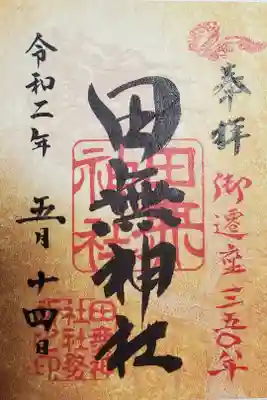 奉拝
御遷座三五〇年
田無神社
田無神社
令和二年
五月十四日
田無神社社務所印